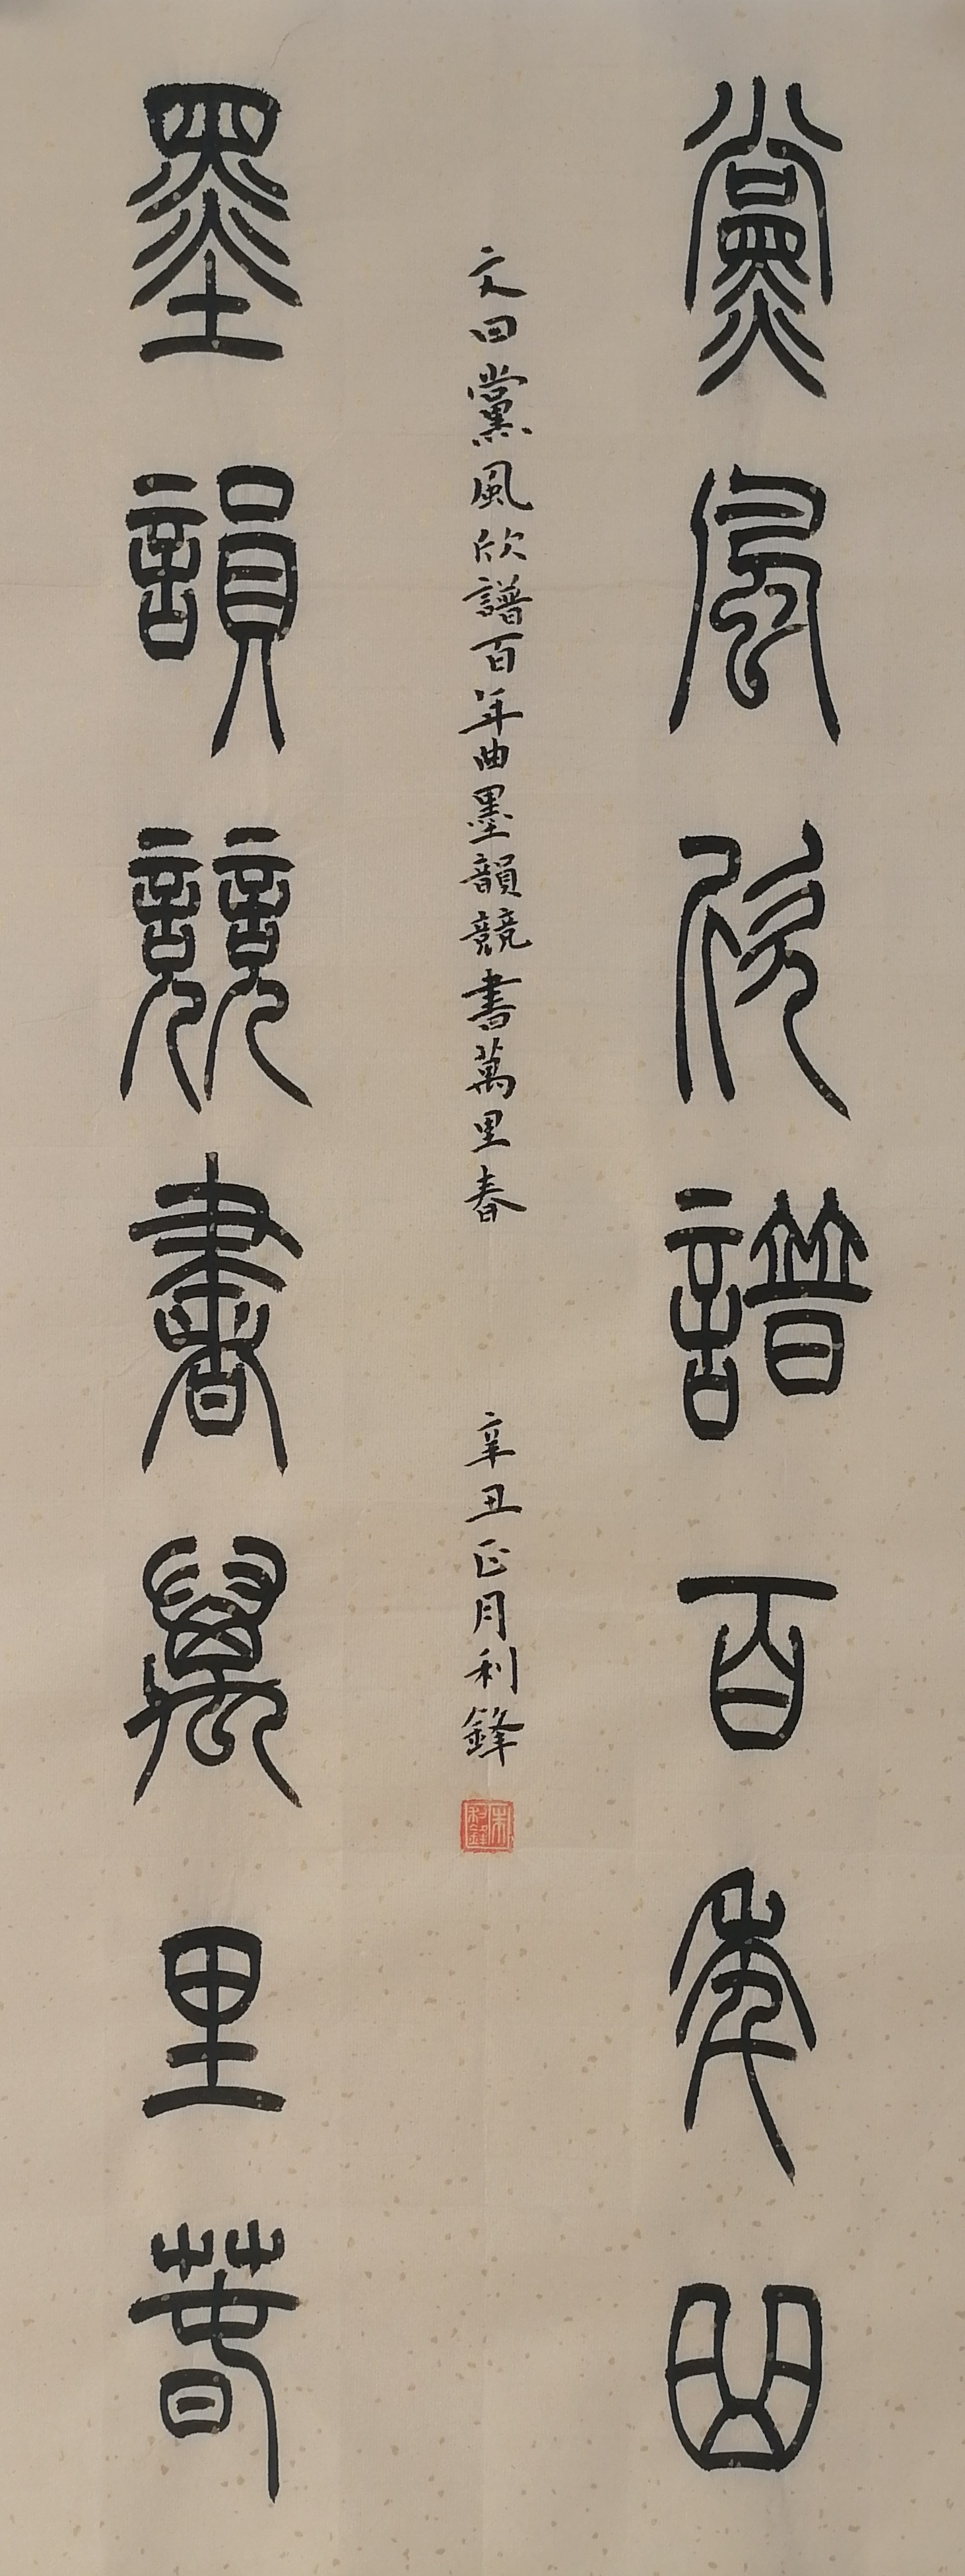 黨風欣譜百年曲
文曰黨風欣譜百年曲墨韻競書萬里春 辛丑正月利鋒
朱利鋒
墨韻競書萬里春